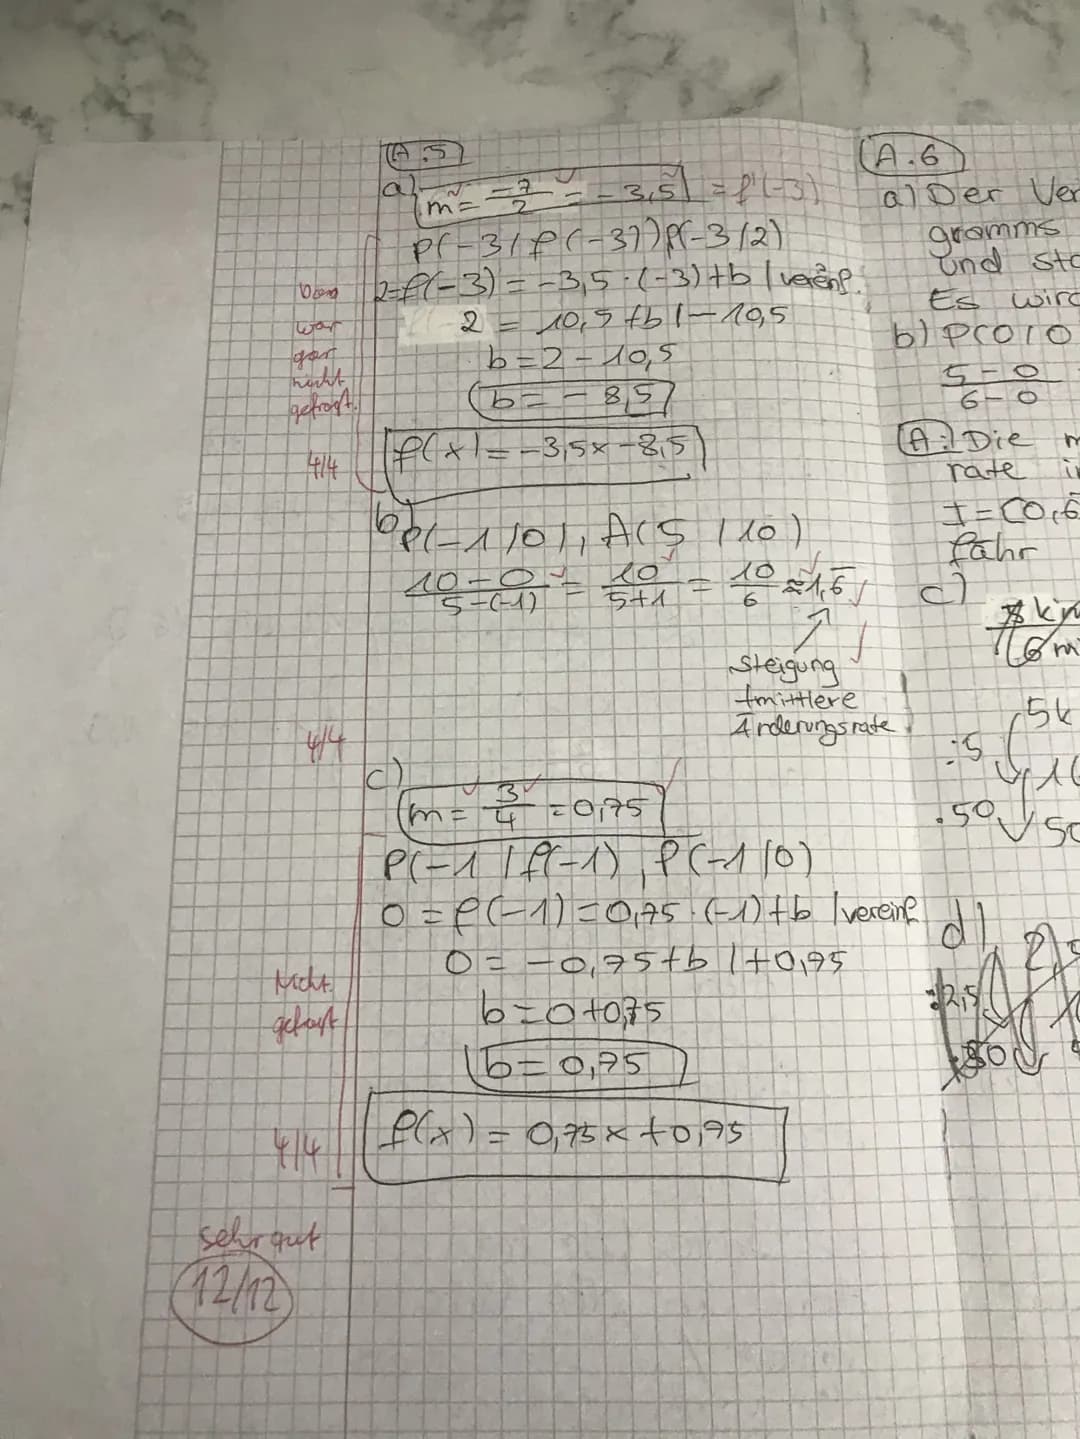 A.5
a) m = -7/2 = -3,5 = f'(-3)
P(-3/f(-3)) P(-3/2)
2=f(-3) = -3,5·(-3)+b |vereinf.
2 = 10,5+b |-10,5
b=2-10,5
b=-8,5
f(x)=-3,5x-8,5
war
gar
nicht
gefragt.
4/4
b) P(-1/0), A(5/10)
10-0/5-(-1) = 10/5+1 = 10/6 ≈ 1,6̅
Steigung
mittlere
Änderungsrate
4/4
c)
m = 3/4 = 0,75
P(-1/f(-1), P(-1/0)
0=f(-1)=0,75·(-1)+b |vereinf
0=-0,75+b |+0,75
b=0+0,75
b=0,75
f(x)=0,75x+0,75
Nicht
gefragt
4/4
sehr gut
12/12
A.6
a) Der Ver
gramms
und sta
Es wird
b) P(0/0
5-0
6-0
A: Die m
rate i
I=(0,6
fähr
c)
km
6 mi
5k
:5
·50
50
d)
2,5
:2,5